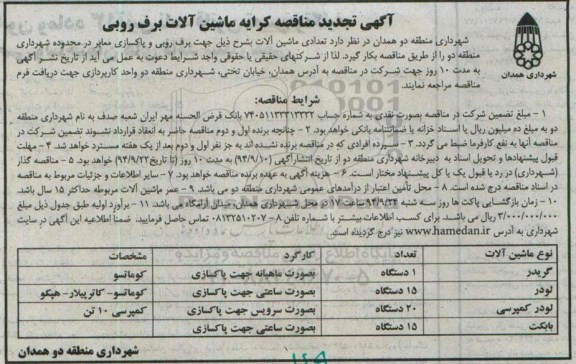 آگهی تجدید مناقصه کرایه ماشین آلات برف روبی
شهرداری همدان
شهرداری منطقه دو همدان در نظر دارد تعدادی ماشین آلات بشرح ذیل جهت برف روبی و پاکسازی معابر در محدوده شهرداری
منطقه دو را از طریق مناقصه بکار گیرد. لذا از شرکتهای حقیقی یا حقوقی واجد شرایط دعوت به عمل می آید از تاریخ نشر آگهی
به مدت ۱۰ روز جهت شرکت در مناقصه به آدرس همدان، خیابان تختی، شهرداری منطقه دو واحد کارپردازی جهت دریافت فرم
مناقصه مراجعه نمایند.
شرایط مناقصه:
۱ - مبلغ تضمین شرکت در مناقصه بصورت نقدی به شماره حساب ۷۴۰۵۱۱۳۳۳۱۳۳۲۲ بانک قرض الحسنه مهر ایران شعبه صدف به نام شهرداری منطقه
دو به مبلغ ده میلیون ریال یا اسناد خزانه یا ضمانتنامه بانکی خواهد بود. ۲ - چنانچه برنده اول و دوم مناقصه حاضر به انعقاد قرارداد نشوند تضمین شرکت در
مناقصه آنها به نفع کارفرما ضبط می گردد. ۳ - سپرده افرادی که در مناقصه برنده نشده اند به جز نفر اول و دوم بعد از یک هفته مسترد خواهد شد. ۴ - مهلت
قبول پیشنهادها و تحویل اسناد به دبیرخانه شهرداری منطقه دو از تاریخ انتشارآگهی (۹۴/۹/۱۰) به مدت ۱۰ روز (تا تاریخ ۹۴/۹/۲۲) خواهد بود. ۵ - مناقصه گذار
(شهرداری) در رد یا قبول یک یا کل پیشنهاد مختار است. ۶ - هزینه آگهی به عهده برنده مناقصه خواهد بود. ۷ - سایر اطلاعات و جزئیات مربوط به مناقصه
در اسناد مناقصه درج شده است. ۸ - محل تأمین اعتبار از درآمدهای عمومی شهرداری منطقه دو می باشد. ۹ - عمر ماشین آلات مربوطه حداکثر ۱۵ سال باشد.
۱۰ - زمان بازگشایی پاکت ها روز سه شنبه ۹۴/۹/۲۴ ساعت ۱۷ در محل شهرداری همدان میدان آرامگاه می باشد. ۱۱ - برآورد اولیه طبق جدول ذیل مبلغ
۳/۰۰۰/۰۰۰/۰۰۰ ریال می باشد. برای کسب اطلاعات بیشتر با شماره تلفن ۸ - ۰۸۱۳۲۵۱۰۲۰۷ تماس حاصل فرمایید. ضمناً اطلاعیه این آگهی در سایت
شهرداری به آدرس www.hamedan.ir نیز درج گردیده است.
نوع ماشین آلات تعداد کارکرد مشخصات
گریدر ۱ دستگاه بصورت ماهیانه جهت پاکسازی کوماتسو
لودر ۱۵ دستگاه بصورت ساعتی جهت پاکسازی کوماتسو- کاترپیلار- هپکو
لودر کمپرسی ۲۰ دستگاه بصورت سرویس جهت پاکسازی کمپرسی ۱۰ تن
بابکت ۱۵ دستگاه بصورت ساعتی جهت پاکسازی
شهرداری منطقه دو همدان